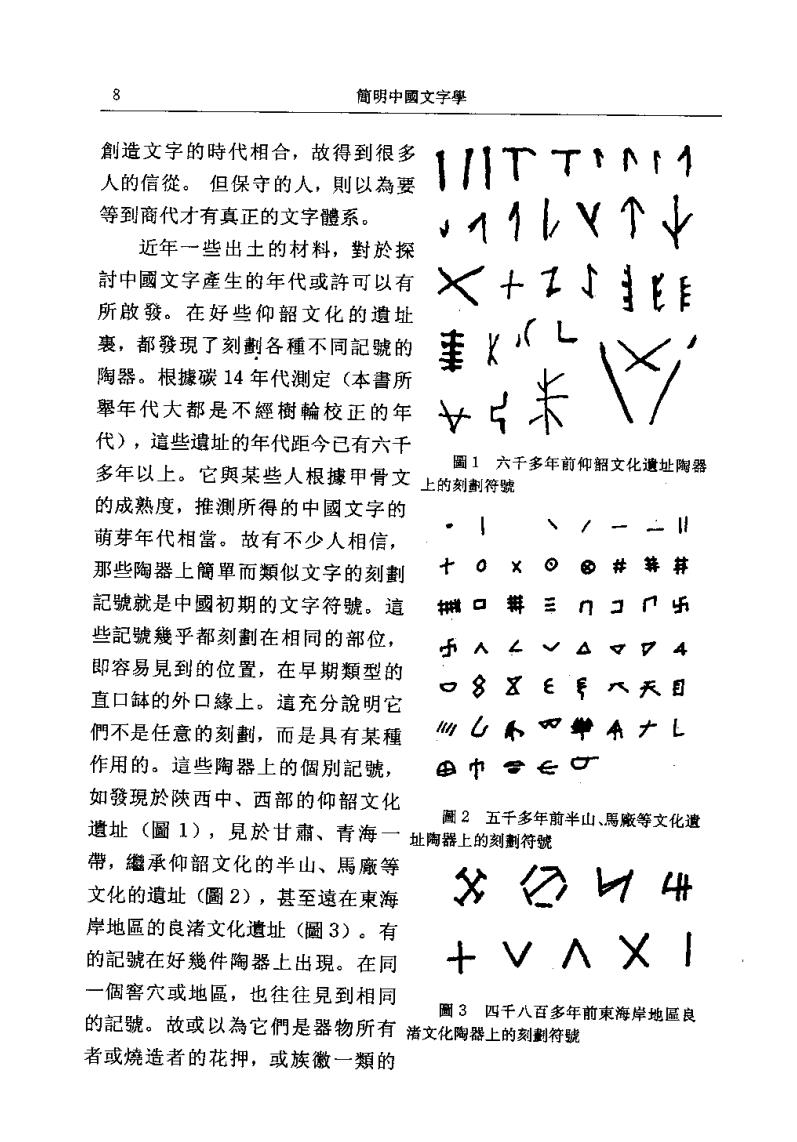 8
簡明中國文字學
創造文字的時代相合，故得到很多
人的信從。但保守的人，則以為要
等到商代才有真正的文字體系。
近年一些出土的材料，對於探
討中國文字產生的年代或許可以有
所啟發。在好些仰韶文化的遺址
裏，都發現了刻劃各種不同記號的
陶器。根據碳14年代測定（本書所
舉年代大都是不經樹輪校正的年
代），這些遺址的年代距今已有六千
多年以上。它與某些人根據甲骨文
的成熟度，推測所得的中國文字的
萌芽年代相當。故有不少人相信，
那些陶器上簡單而類似文字的刻劃
記號就是中國初期的文字符號。這
些記號幾乎都刻劃在相同的部位，
即容易見到的位置，在早期類型的
直口缽的外口緣上。這充分說明它
們不是任意的刻劃，而是具有某種
作用的。這些陶器上的個別記號，
如發現於陝西中、西部的仰韶文化
遺址（圖1），見於甘肅、青海一
帶，繼承仰韶文化的半山、馬廠等
文化的遺址（圖2），甚至遠在東海
岸地區的良渚文化遺址（圖3）。有
的記號在好幾件陶器上出現。在同
一個窖穴或地區，也往往見到相同
的記號。故或以為它們是器物所有
者或燒造者的花押，或族徽一類的
圖1　六千多年前仰韶文化遺址陶器
上的刻劃符號
圖2　五千多年前半山、馬廠等文化遺
址陶器上的刻劃符號
圖3　四千八百多年前東海岸地區良
渚文化陶器上的刻劃符號